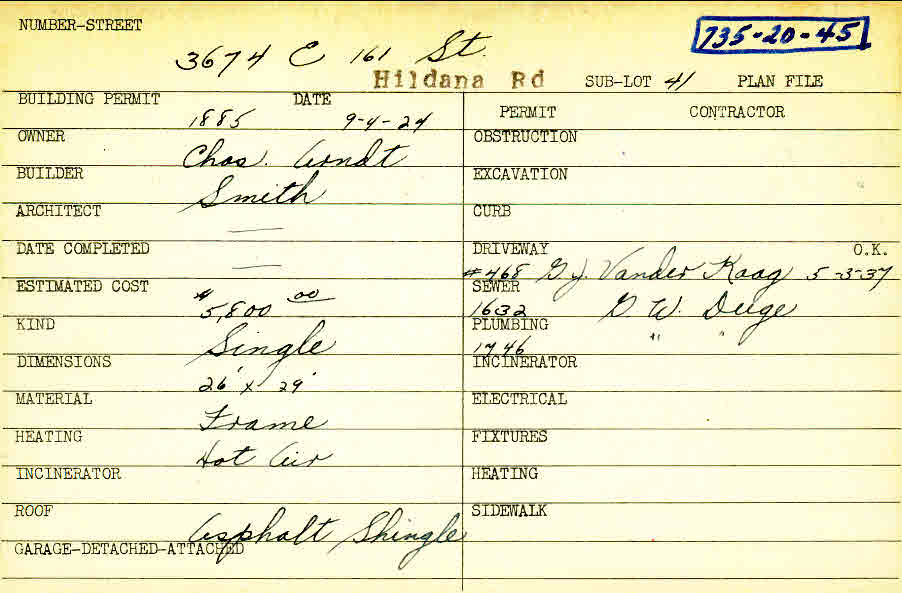 NUMBER-STREET
735-20-45
3674 E 161 St.
Hildana Rd SUB-LOT 41 PLAN FILE
BUILDING PERMIT 1885 DATE 9-4-24
OWNER Chas. Arndt
BUILDER Smith
ARCHITECT —
DATE COMPLETED —
ESTIMATED COST $5,800 00
KIND Single
DIMENSIONS 26' x 29'
MATERIAL Frame
HEATING Hot Air
INCINERATOR
ROOF Asphalt Shingle
GARAGE-DETACHED-ATTACHED
PERMIT CONTRACTOR
OBSTRUCTION
EXCAVATION
CURB
DRIVEWAY O.K.
#468 G J. Vander Kaag 5-3-37
SEWER
1632 G W. Deige
PLUMBING
1746 " "
INCINERATOR
ELECTRICAL
FIXTURES
HEATING
SIDEWALK